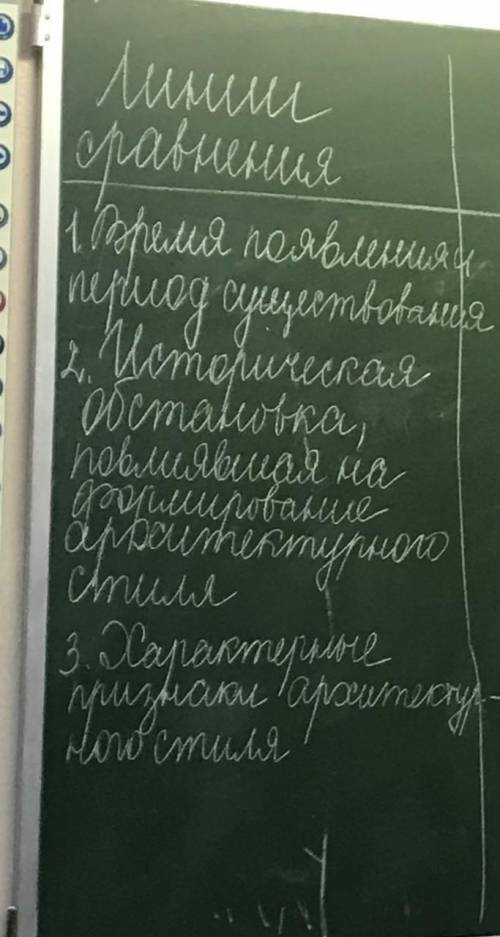 Линии
сравнения
1. Время появления и
период существования
2. Историческая
обстановка,
повлиявшая на
формирование
архитектурного
стиля
3. Характерные
признаки архитектур-
ного стиля